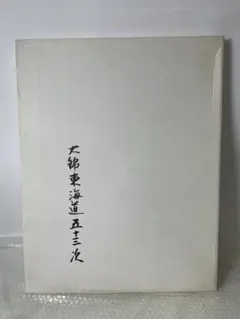 大錦東海道五十三次